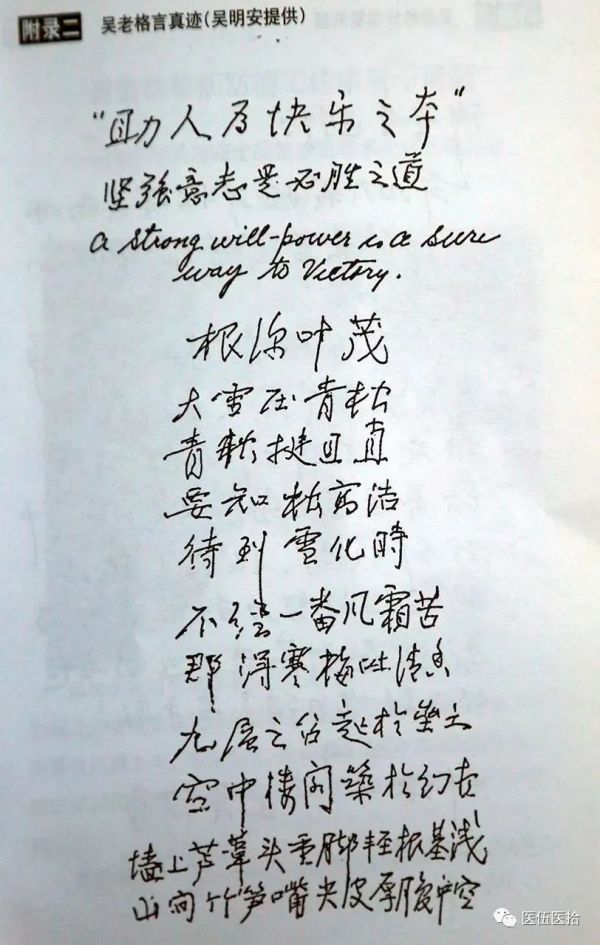 附录二 吴老格言真迹(吴明安提供)
"助人乃快乐之本"
坚强意志是必胜之道
a strong will-power is a sure
way to Victory.
根深叶茂
大雪压青松
青松挺且直
要知松高洁
待到雪化時
不经一番风霜苦
那得寒梅吐清香
九层之台起於垒土
空中楼阁築於幻想
墙上芦苇头重脚轻根基浅
山间竹笋嘴尖皮厚腹中空
医伍医拾